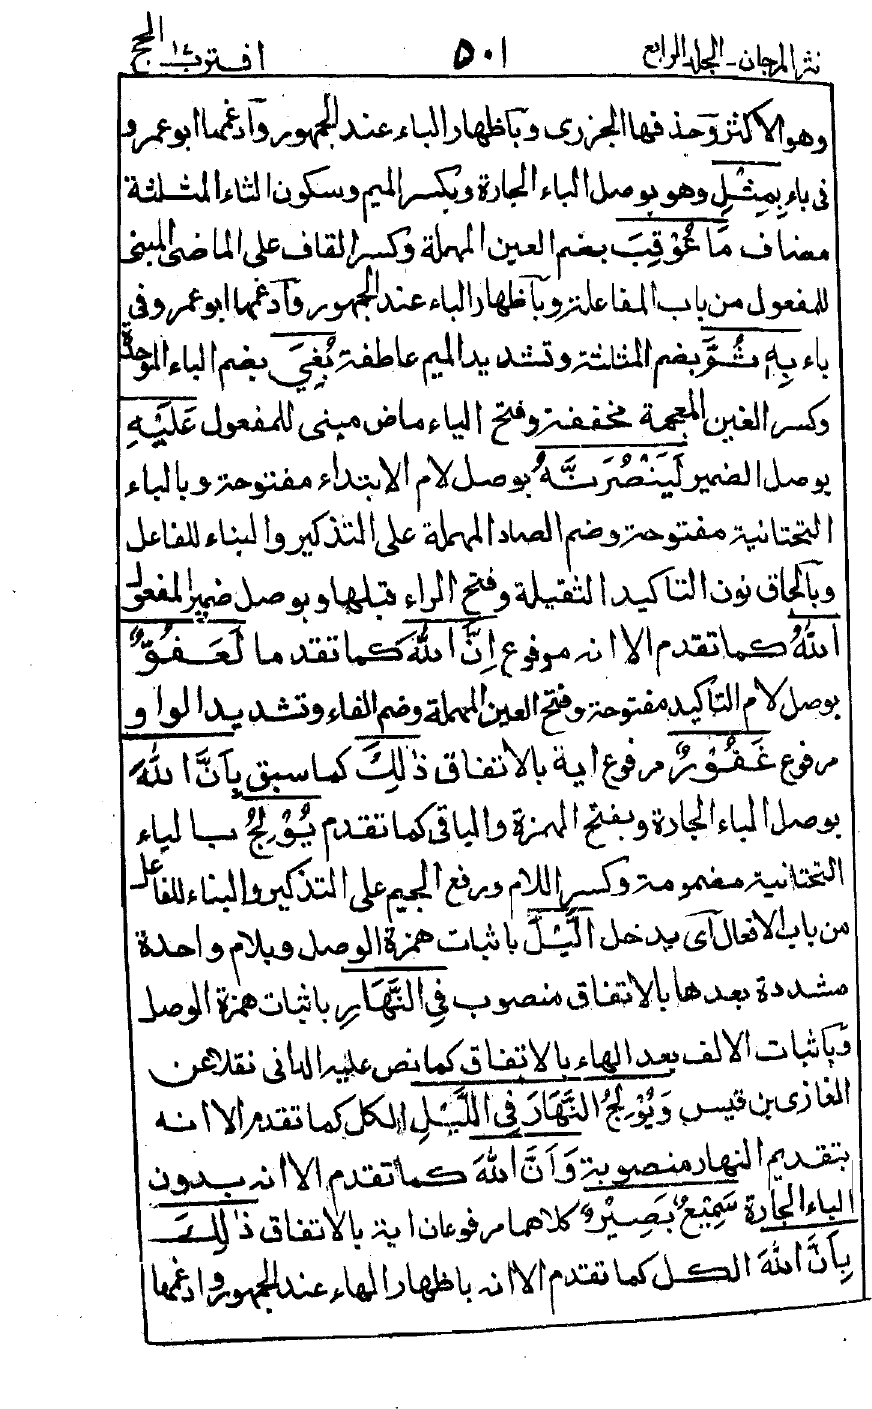 نثر المرجان - المجلد الرابع ٥٠١ اقترب ١٧ الحج
وهو الاكثر وحذفها الجزرى وبآظهار الباء عند الجمهور وآدغمها ابو عمرو
فى باء بِمِثْلِ وهو بوصل الباء الجارة وبكسر الميم وسكون الثاء المثلثة
مضاف مَا عُوْقِبَ بضم العين المهملة وكسر القاف على الماضى المبنى
للمفعول من باب المفاعلة وبآظهار الباء عند الجمهور وآدغمها ابو عمرو فى
باء بِهٖ ثُمَّ بضم المثلثة وتشديد الميم عاطفة بُغِيَ بضم الباء الموحدة
وكسر الغين المعجمة مخففة وفتح الياء ماض مبنى للمفعول عَلَيْهِ
بوصل الضمير لَيَنْصُرَنَّهُ بوصل لام الابتداء مفتوحة وبالياء
التحتانية مفتوحة وضم الصاد المهملة على التذكير والبناء للفاعل
وبآلحاق نون التاكيد الثقيلة وفتح الراء قبلها وبوصل ضمير المفعول
اللهُ كما تقدم الا انه مرفوع اِنَّ اللهَ كما تقدما لَعَفُوٌّ
بوصل لام التاكيد مفتوحة وفتح العين المهملة وضم الفاء وتشديد الواو
مرفوع غَفُوْرٌ مرفوع اية بالاتفاق ذٰلِكَ كما سبق بِاَنَّ اللهَ
بوصل الباء الجارة وبفتح الهمزة والباقى كما تقدم يُوْلِجُ بالياء
التحتانية مضمومة وكسر اللام ورفع الجيم على التذكير والبناء للفاعل
من باب الافعال آى يدخل الَّيْلَ باثبات همزة الوصل وبلام واحدة
مشددة بعدها بالاتفاق منصوب فِي النَّهَارِ باثبات همزة الوصل
وبآثبات الالف بعد الهاء بالاتفاق كما نص عليه الدانى نقلا عن
الغازى بن قيس وَيُوْلِجُ النَّهَارَ فِي الَّيْلِ الكل كما تقدم الا انه
بتقديم النهار منصوبة وَاَنَّ اللهَ كما تقدم الا انه بدون
الباء الجارة سَمِيْعٌ بَصِيْرٌ كلاهما مرفوعان اية بالاتفاق ذٰلِكَ
بِاَنَّ اللهَ الكل كما تقدم الا انه باظهار الهاء عند الجمهور وادغمها